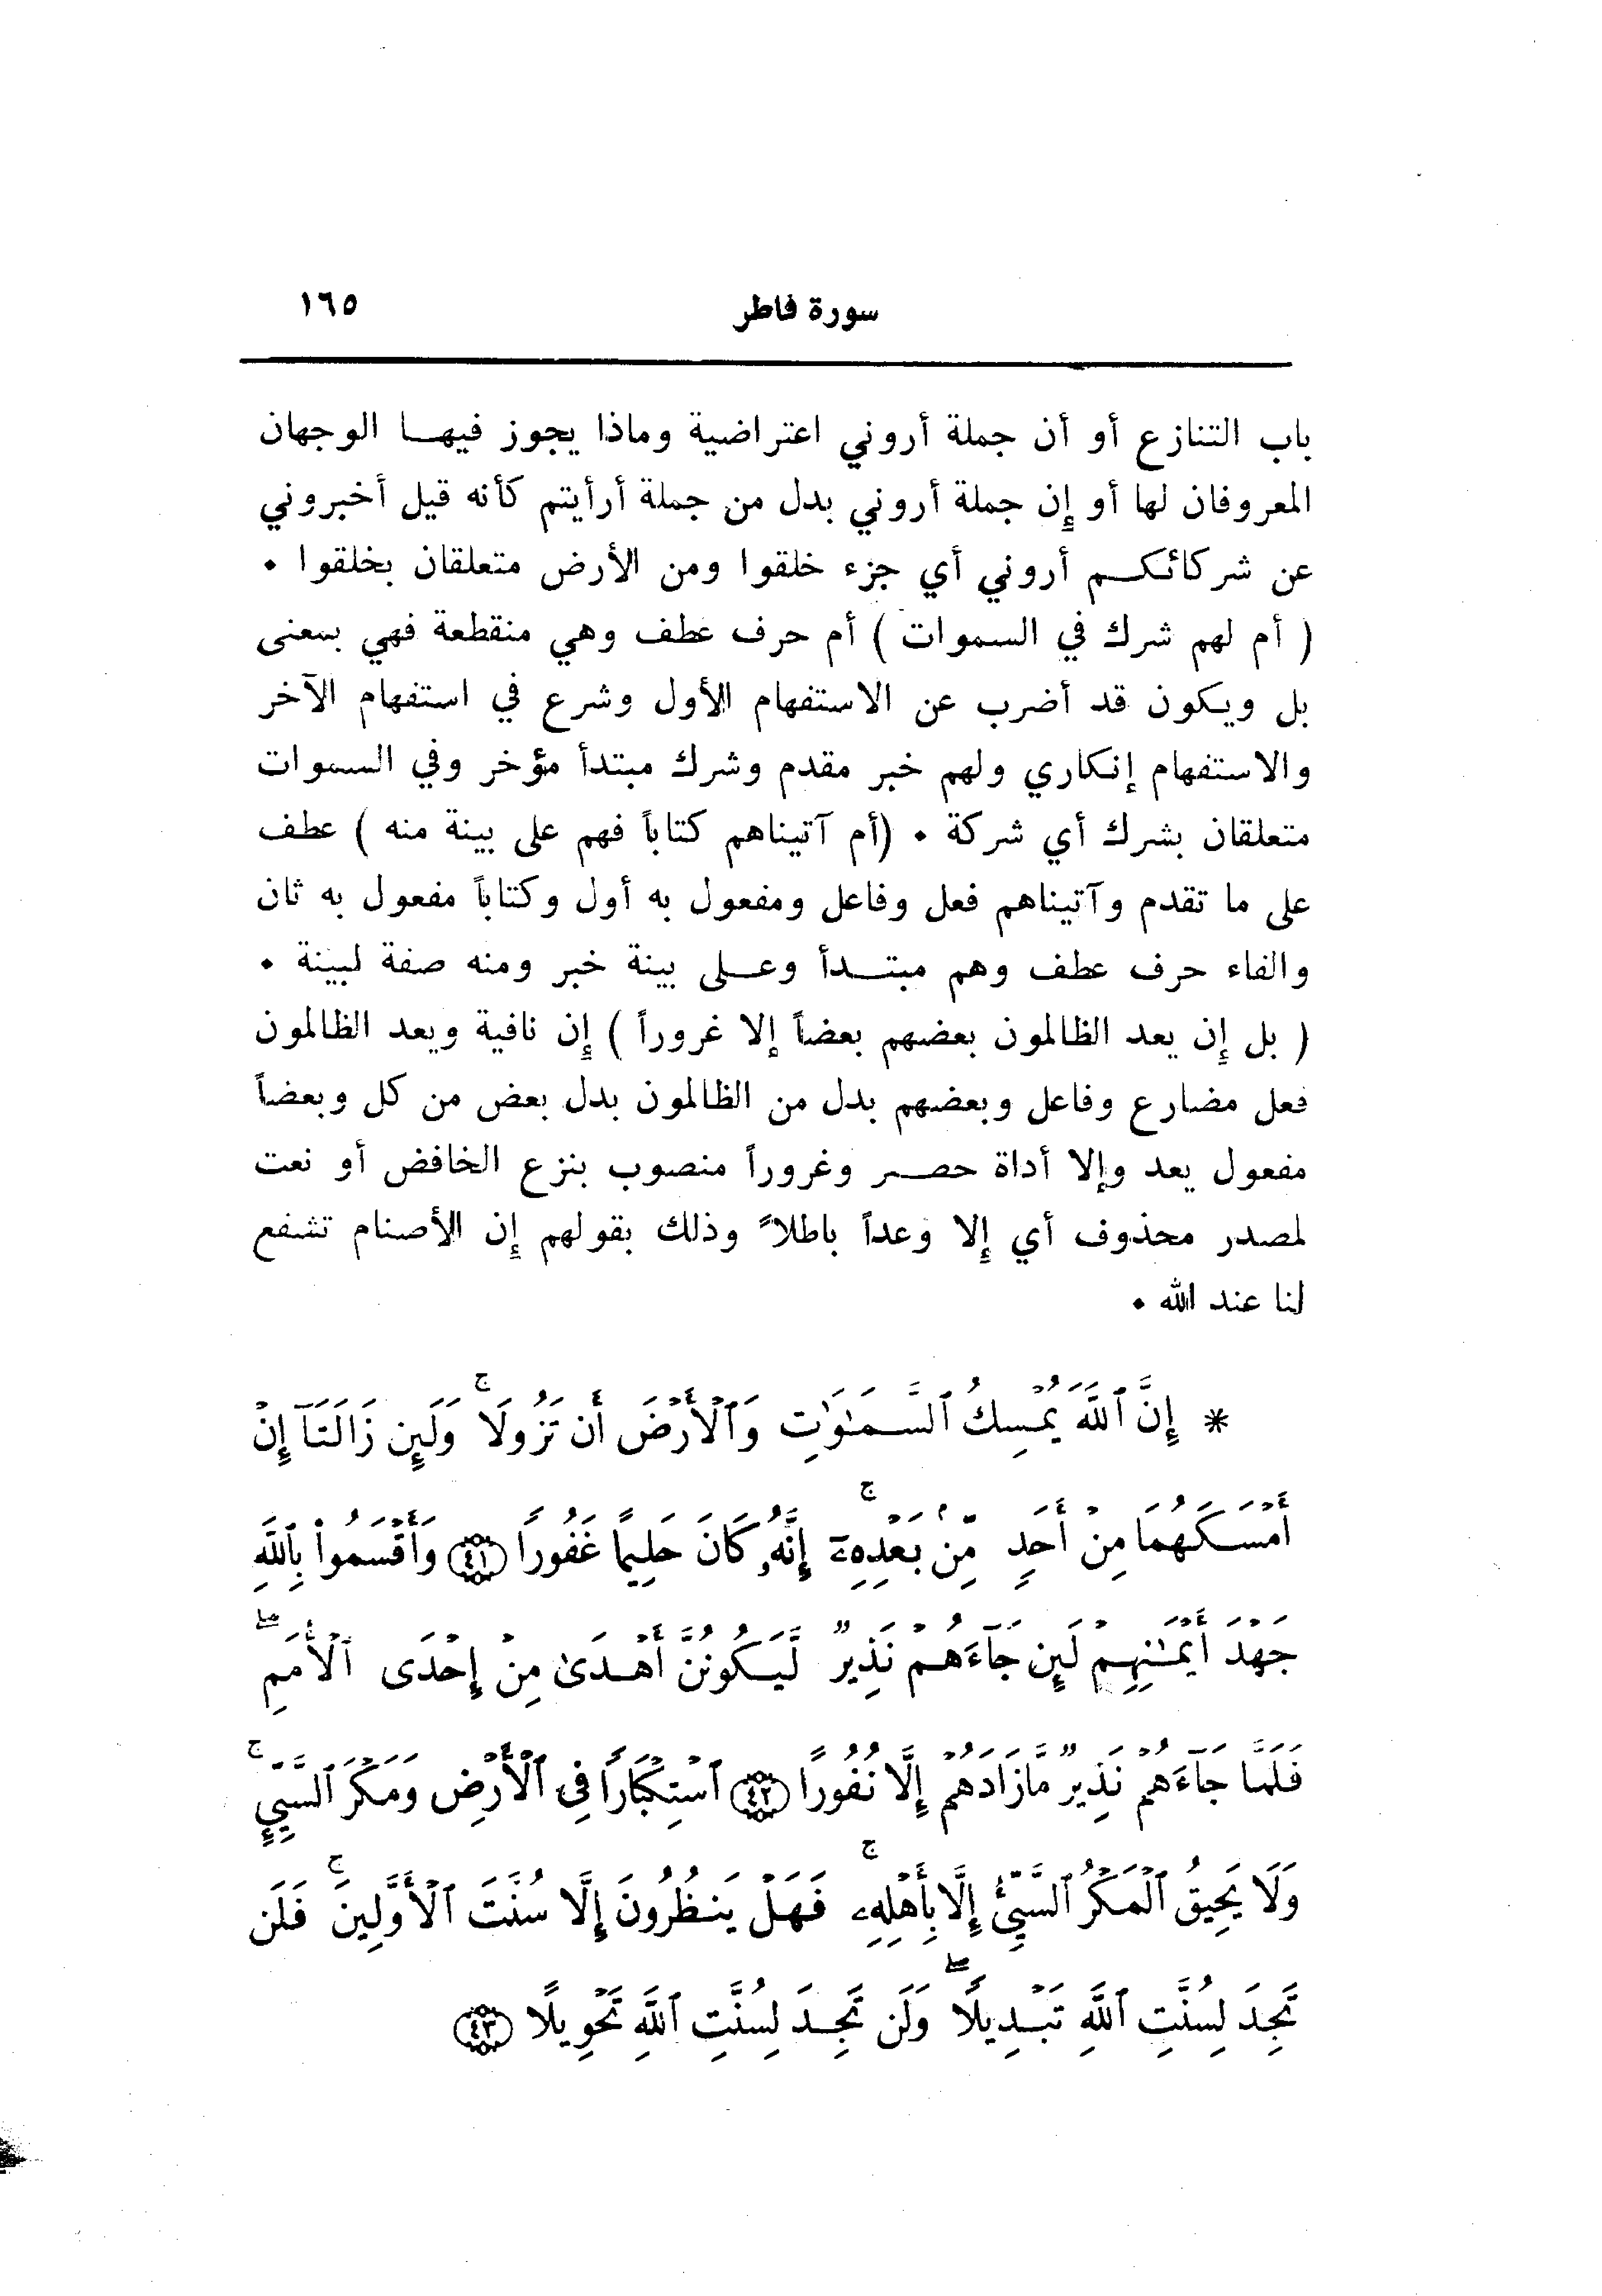 سورة فاطر ١٦٥
باب التنازع أو أن جملة أروني اعتراضية وماذا يجوز فيهـــا الوجهان
المعروفان لها أو إن جملة أروني بدل من جملة أرأيتم كأنه قيل أخبروني
عن شركائكـــم أروني أي جزء خلقوا ومن الأرض متعلقان بخلقوا ٠
( أم لهم شرك في السموات ) أم حرف عطف وهي منقطعة فهي بمعنى
بل ويكون قد أضرب عن الاستفهام الأول وشرع في استفهام الآخر
والاستفهام إنكاري ولهم خبر مقدم وشرك مبتدأ مؤخر وفي السموات
متعلقان بشرك أي شركة ٠ (أم آتيناهم كتاباً فهم على بينة منه ) عطف
على ما تقدم وآتيناهم فعل وفاعل ومفعول به أول وكتاباً مفعول به ثان
والفاء حرف عطف وهم مبتـــدأ وعـــلى بينة خبر ومنه صفة لبينة ٠
( بل إن يعد الظالمون بعضهم بعضاً إلا غروراً ) إن نافية ويعد الظالمون
فعل مضارع وفاعل وبعضهم بدل من الظالمون بدل بعض من كل وبعضاً
مفعول يعد وإلا أداة حصـــر وغروراً منصوب بنزع الخافض أو نعت
لمصدر محذوف أي إلا وعداً باطلاً وذلك بقولهم إن الأصنام تشفع
لنا عند الله ٠
* إِنَّ ٱللَّهَ يُمْسِكُ ٱلسَّمَـٰوَٰتِ وَٱلْأَرْضَ أَن تَزُولَا ۚ وَلَئِن زَالَتَآ إِنْ
أَمْسَكَهُمَا مِنْ أَحَدٍ مِّنۢ بَعْدِهِۦٓ ۚ إِنَّهُۥ كَانَ حَلِيمًا غَفُورًا ﴿٤١﴾ وَأَقْسَمُوا۟ بِٱللَّهِ
جَهْدَ أَيْمَـٰنِهِمْ لَئِن جَآءَهُمْ نَذِيرٌ لَّيَكُونُنَّ أَهْدَىٰ مِنْ إِحْدَى ٱلْأُمَمِ ۖ
فَلَمَّا جَآءَهُمْ نَذِيرٌ مَّا زَادَهُمْ إِلَّا نُفُورًا ﴿٤٢﴾ ٱسْتِكْبَارًا فِى ٱلْأَرْضِ وَمَكْرَ ٱلسَّيِّئِ ۚ
وَلَا يَحِيقُ ٱلْمَكْرُ ٱلسَّيِّئُ إِلَّا بِأَهْلِهِۦ ۚ فَهَلْ يَنظُرُونَ إِلَّا سُنَّتَ ٱلْأَوَّلِينَ ۚ فَلَن
تَجِدَ لِسُنَّتِ ٱللَّهِ تَبْدِيلًا ۖ وَلَن تَجِدَ لِسُنَّتِ ٱللَّهِ تَحْوِيلًا ﴿٤٣﴾